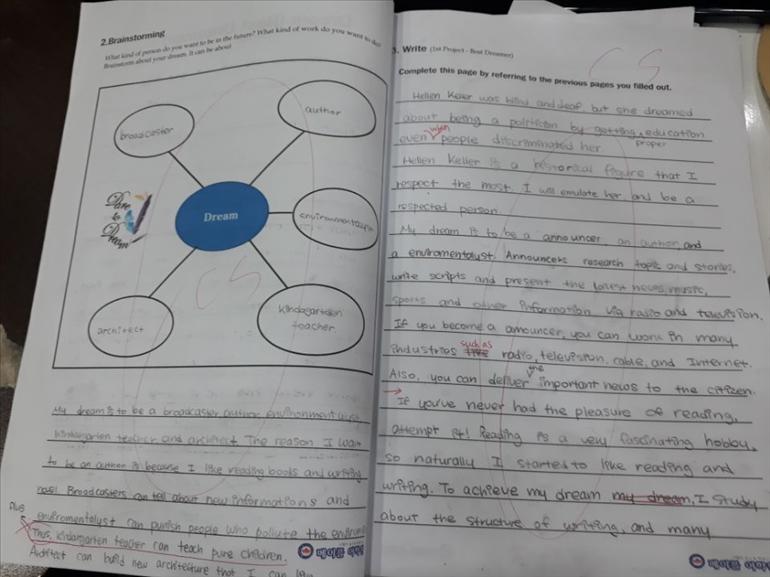 2.Brainstorming
What kind of person do you want to be in the future? What kind of work do you want to do?
Brainstorm about your dream. It can be about
broadcaster
author
Dream
environmentalyst
Dare
to
Dream
architect
kindagarten
teacher
CS
My dream is to be a broadcaster, author, environmentalyst
kindagarten teacher and architect The reason I want
to be an author is because I like reading books and writing
novel Broadcasters can tell about new informations and
Plus
enviromentalyst can punish people who pollute the
Thus, kindargarten teacher can teach pure children.
Architect can build new architecture that I can
3. Write (1st Project - Best Dreamer)
CS
Complete this page by referring to the previous pages you filled out.
Hellen Keller was blind and deaf but she dreamed
about being a politician by getting education
proper
even when people discriminated her.
Hellen Keller is a historical figure that I
respect the most. I will emulate her, and be a
respected person.
My dream is to be a announcer, an author, and
a enviromentalyst. Announcers research topic and stories,
write scripts and present the latest news, music,
sports and other information via radio and television.
If you become a announcer, you can work in many
industries like such as radio, television, cable, and Internet.
Also, you can deliver the important news to the citizen.
If you've never had the pleasure of reading,
attempt it! Reading is a very fascinating hobby,
so naturally I started to like reading and
writing. To achieve my dream my dream, I study
about the structure of writing, and many